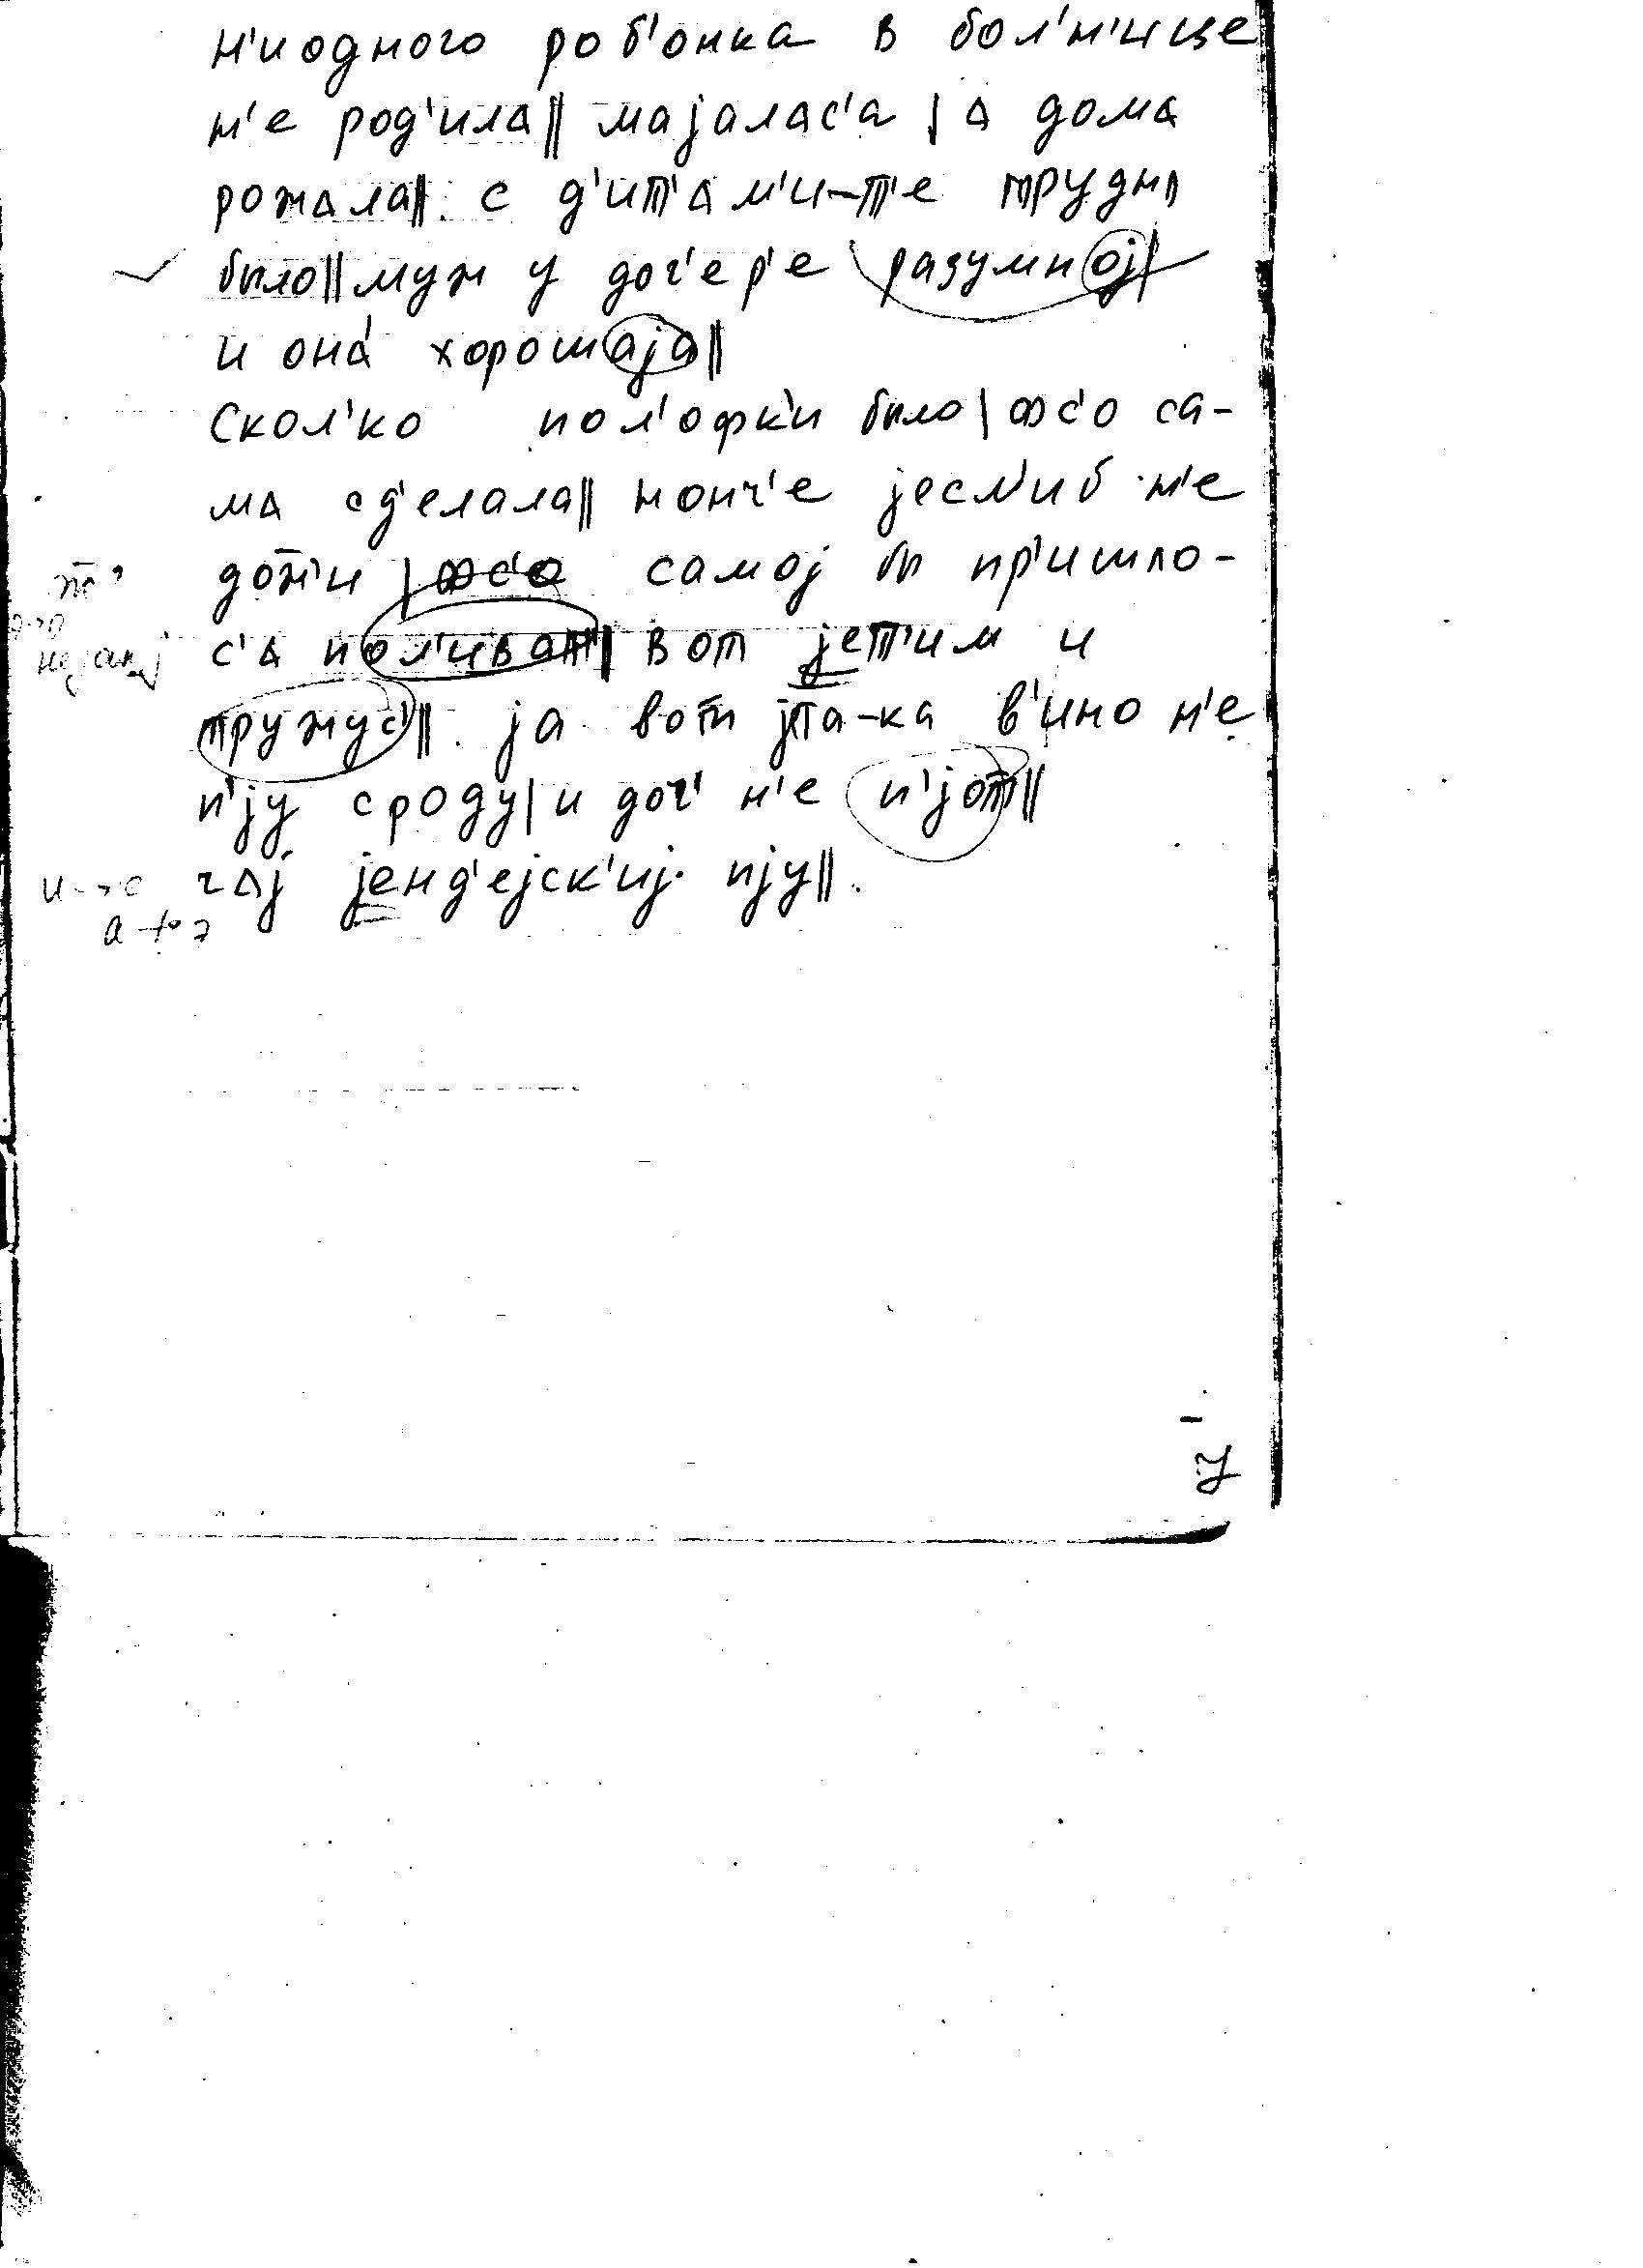 н'иодного роб'онка в бол'н'ице
н'е род'ила|| мајалас'а | а дома
рожала||. с д'ит'ам'и-т'е трудна
было|| муж у доч'ер'е разумној|
и она́ хорошаја||
Скол'ко пол'офк'и было | фс'о са-
ма сд'елала|| нонч'е јесл'иб н'е
дож'и | фс'о самој бы пр'ишло-
с'а пол'иват'|| вот јет'им и
тружус'||. ја вот јта-ка в'ино н'е
п'ју сроду | и доч' н'е п'јот||
и→е чај јенд'ејск'иј пју||.
а→э